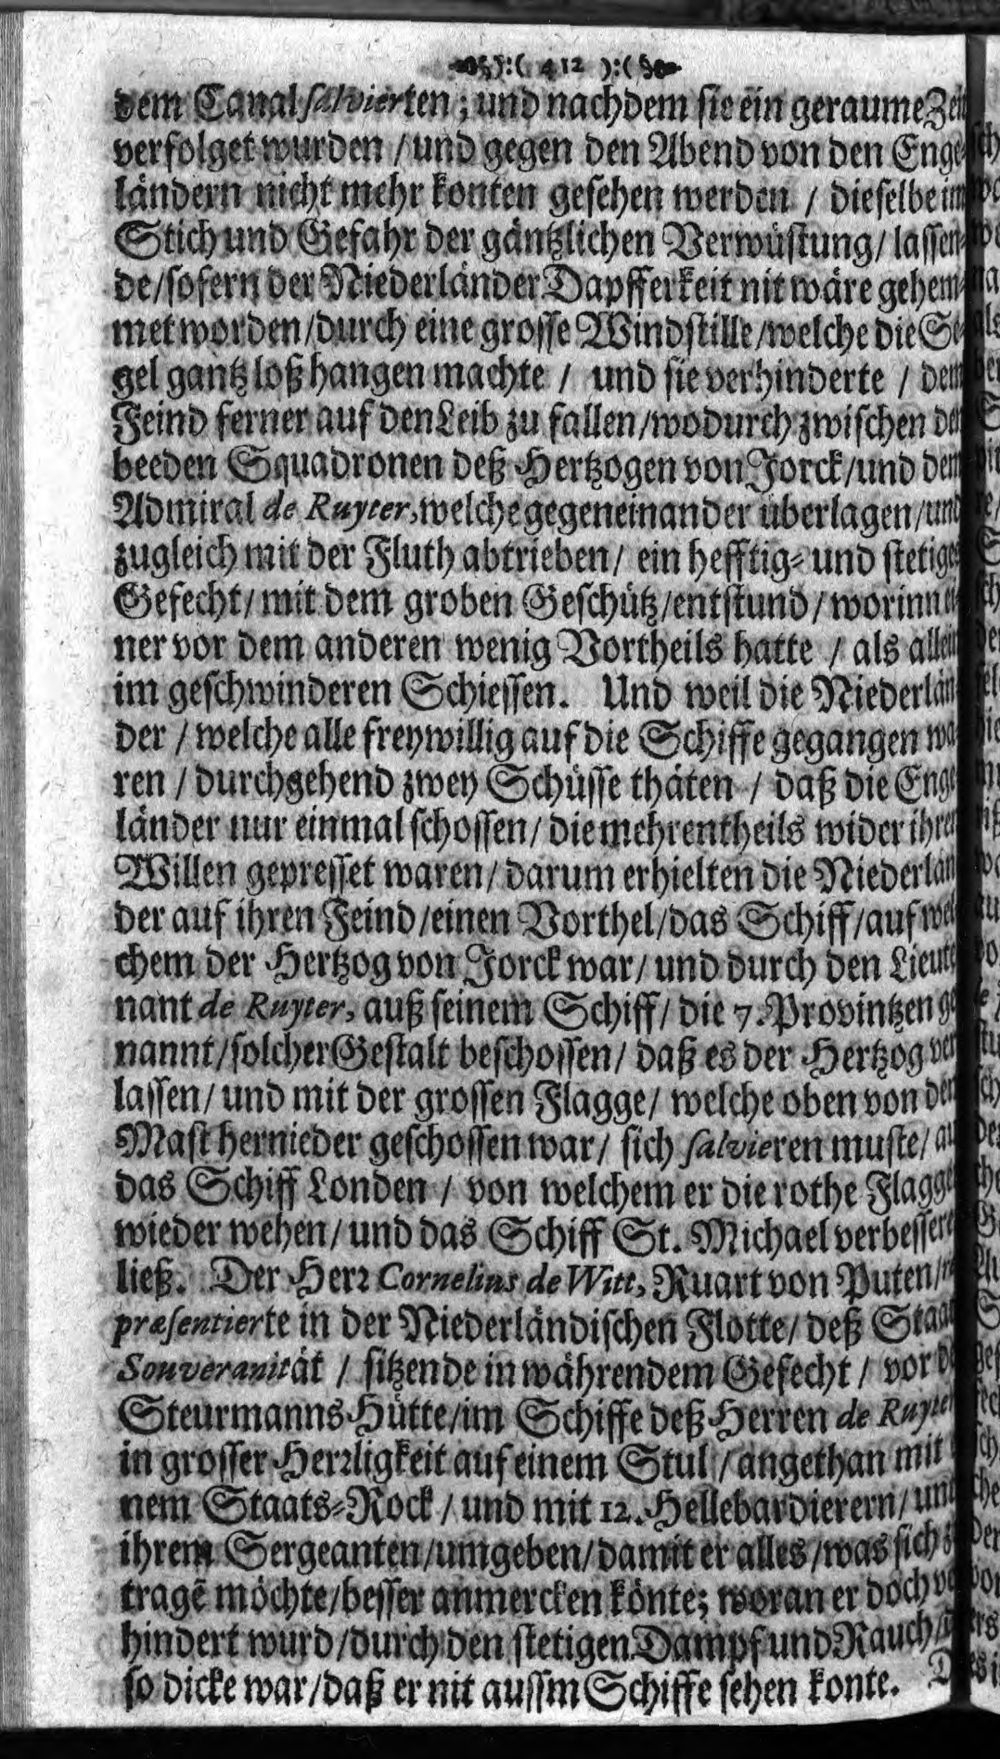 ):( 412 ):(
dem Canal salvierten; und nachdem sie ein geraume Zeit
verfolget wurden / und gegen den Abend von den Enge-
ländern nicht mehr konten gesehen werden / dieselbe im
Stich und Gefahr der gäntzlichen Verwüstung / lassen-
de / sofern der Niederländer Dapfferkeit nit wäre gehem-
met worden / durch eine grosse Windstille / welche die Se-
gel gantz loß hangen machte / und sie verhinderte / dem
Feind ferner auf den Leib zu fallen / wodurch zwischen den
beeden Squadronen deß Hertzogen von Jorck / und dem
Admiral de Ruyter, welche gegeneinander überlagen / und
zugleich mit der Fluth abtrieben / ein hefftig- und stetiges
Gefecht / mit dem groben Geschütz / entstund / worinn
ner vor dem anderen wenig Vortheils hatte / als allein
im geschwinderen Schiessen. Und weil die Niederlän-
der / welche alle freywillig auf die Schiffe gegangen wa-
ren / durchgehend zwey Schüsse thäten / daß die Enge-
länder nur einmal schossen / die mehrentheils wider ihren
Willen gepresset waren / darum erhielten die Niederlän-
der auf ihren Feind / einen Vorthel / das Schiff / auf wel-
chem der Hertzog von Jorck war / und durch den Lieute-
nant de Ruyter, auß seinem Schiff / die 7. Provintzen ge-
nannt / solcher Gestalt beschossen / daß es der Hertzog ver-
lassen / und mit der grossen Flagge / welche oben von dem
Mast hernieder geschossen war / sich salvieren muste / auf
das Schiff Londen / von welchem er die rothe Flagge
wieder wehen / und das Schiff St. Michael verbesseren
ließ. Der Herr Cornelius de Witt, Ruart von Puten / re-
præsentierte in der Niederländischen Flotte / deß Staats
Souveranität / sitzende in währendem Gefecht / vor der
Steurmanns Hütte / im Schiffe deß Herren de Ruyter
in grosser Herrligkeit auf einem Stul / angethan mit
nem Staats-Rock / und mit 12. Hellebardierern / und
ihrem Sergeanten / umgeben / damit er alles / was sich zu
tragē möchte / besser anmercken könte; woran er doch ver-
hindert wurd / durch den stetigen Dampf und Rauch /
so dicke war / daß er nit aussm Schiffe sehen konte.